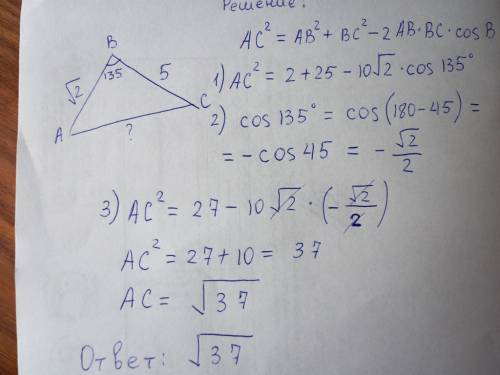 Решение:
B
135
√2
5
A
C
?
AC² = AB² + BC² - 2 AB · BC · cos B
1) AC² = 2 + 25 - 10√2 · cos 135°
2) cos 135° = cos (180 - 45) =
= - cos 45 = - √2/2
3) AC² = 27 - 10 √2 · (- √2/2)
AC² = 27 + 10 = 37
AC = √37
Ответ: √37